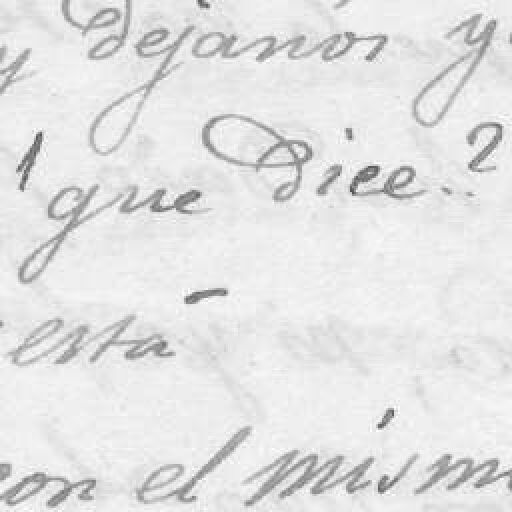 y Dejanos y
¿que Dice..?
esta
con el mismo